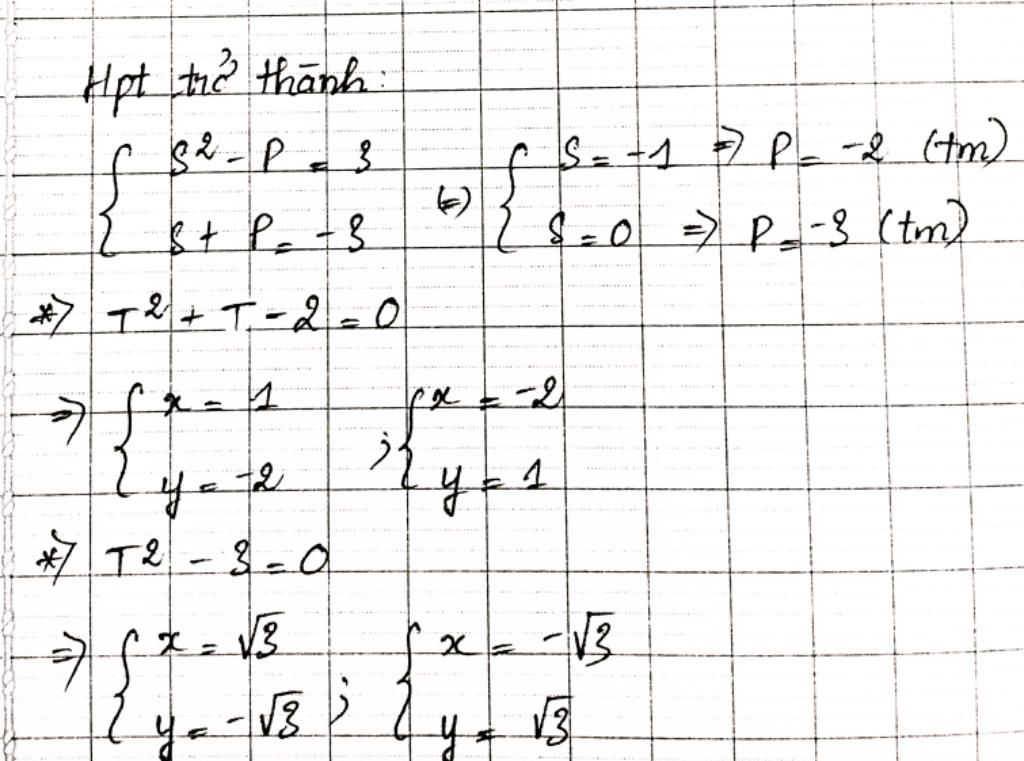 Hpt trở thành:
{ S² - P = 3 (=) { S = -1 => P = -2 (tm)
{ S + P = -3 { S = 0 => P = -3 (tm)
*) T² + T - 2 = 0
=> { x = 1 ; { x = -2
{ y = -2 { y = 1
*) T² - 3 = 0
=> { x = √3 ; { x = -√3
{ y = -√3 { y = √3